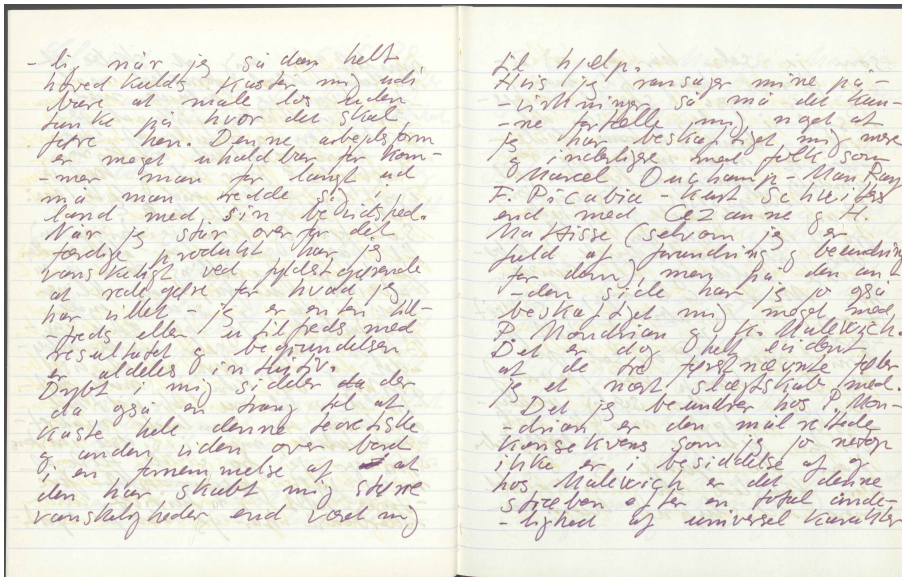 - li, når jeg så dan helt
hoved kulds kaster mig udi
bare at male løs uden
tanke på hvor det skal
føre hen. Denne arbejdsform
er meget uholdbar for kom-
-mer man for langt ud
må man redde sig i
land med sin bevidsthed.
Når jeg står overfor det
færdige produkt har jeg
vanskeligt ved fyldestgørende
at redegøre for hvad jeg
har villet - jeg er enten til-
-freds eller utilfreds med
resultatet og begrundelsen
er aldeles intuitiv.
Dybt i mig sidder da der
da også en trang til at
kaste hele denne teoretiske
og anden viden over bord
i en fornemmelse af at
den har skabt mig større
vanskeligheder end været mig
til hjælp.
Hvis jeg ransager mine på-
-virkninger så må det kun-
-ne fortælle mig noget at
jeg har beskæftiget mig mere
og inderligere med folk som
Marcel Duchamp - Man Ray
F. Picabia - Kurt Schwitters
end med Cezanne og H.
Mattisse (selvom jeg er
fuld af forundring og beundring
for dem) men på den an-
-den side har jeg jo også
beskæftiget mig meget med
P. Mondrian og K. Malewich.
Det er dog helt evident
at de tre førstnævnte føler
jeg et nært slægtskab med.
Det jeg beundrer hos P. Mon-
-drian er den målrettede
konsekvens som jeg jo netop
ikke er i besiddelse af og
hos Malewich er det denne
stræben efter en total inder-
-lighed af universel karakter